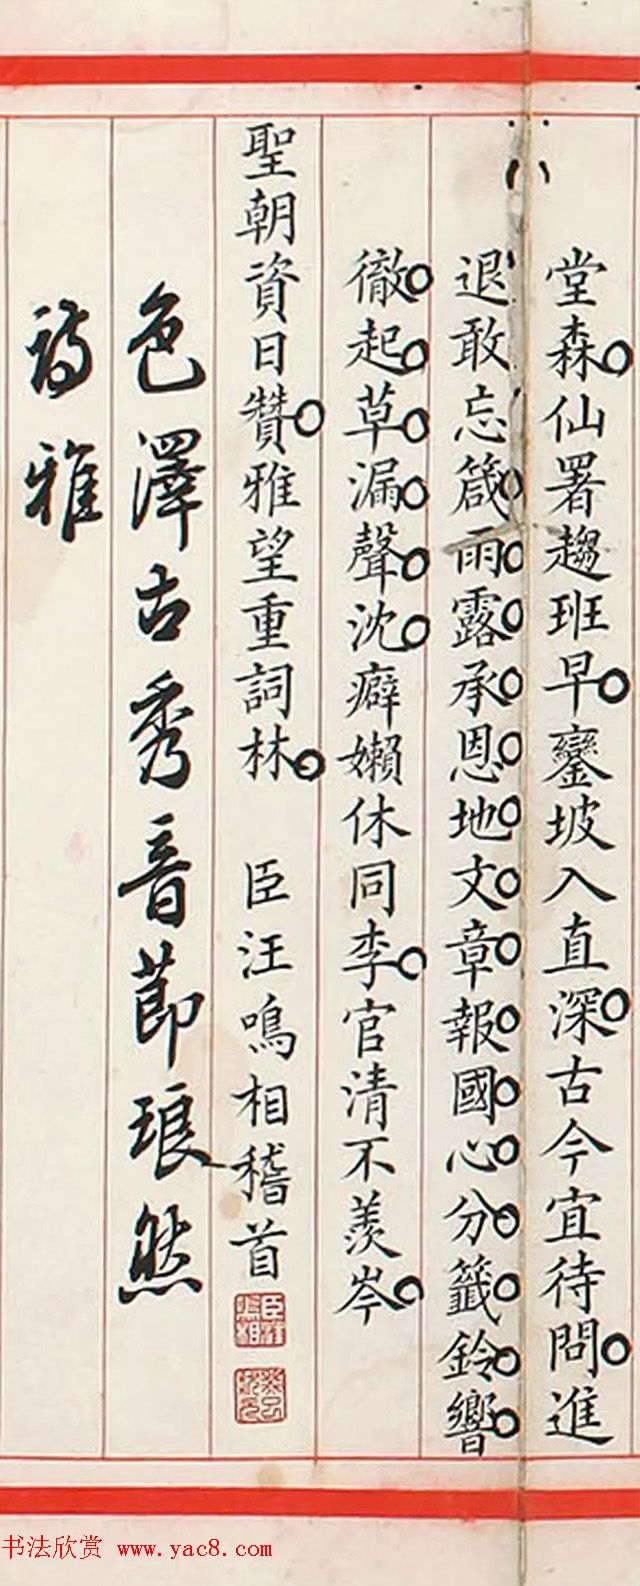 堂森仙署趨班早鑾坡入直深古今宜待問進
退敢忘箴雨露承恩地文章報國心分籤鈴響
徹起草漏聲沈癖嬾休同李官清不羨岑
聖朝資日贊雅望重詞林 臣汪鳴相稽首
色澤古秀音節琅然
诗雅
书法欣赏 www.yac8.com